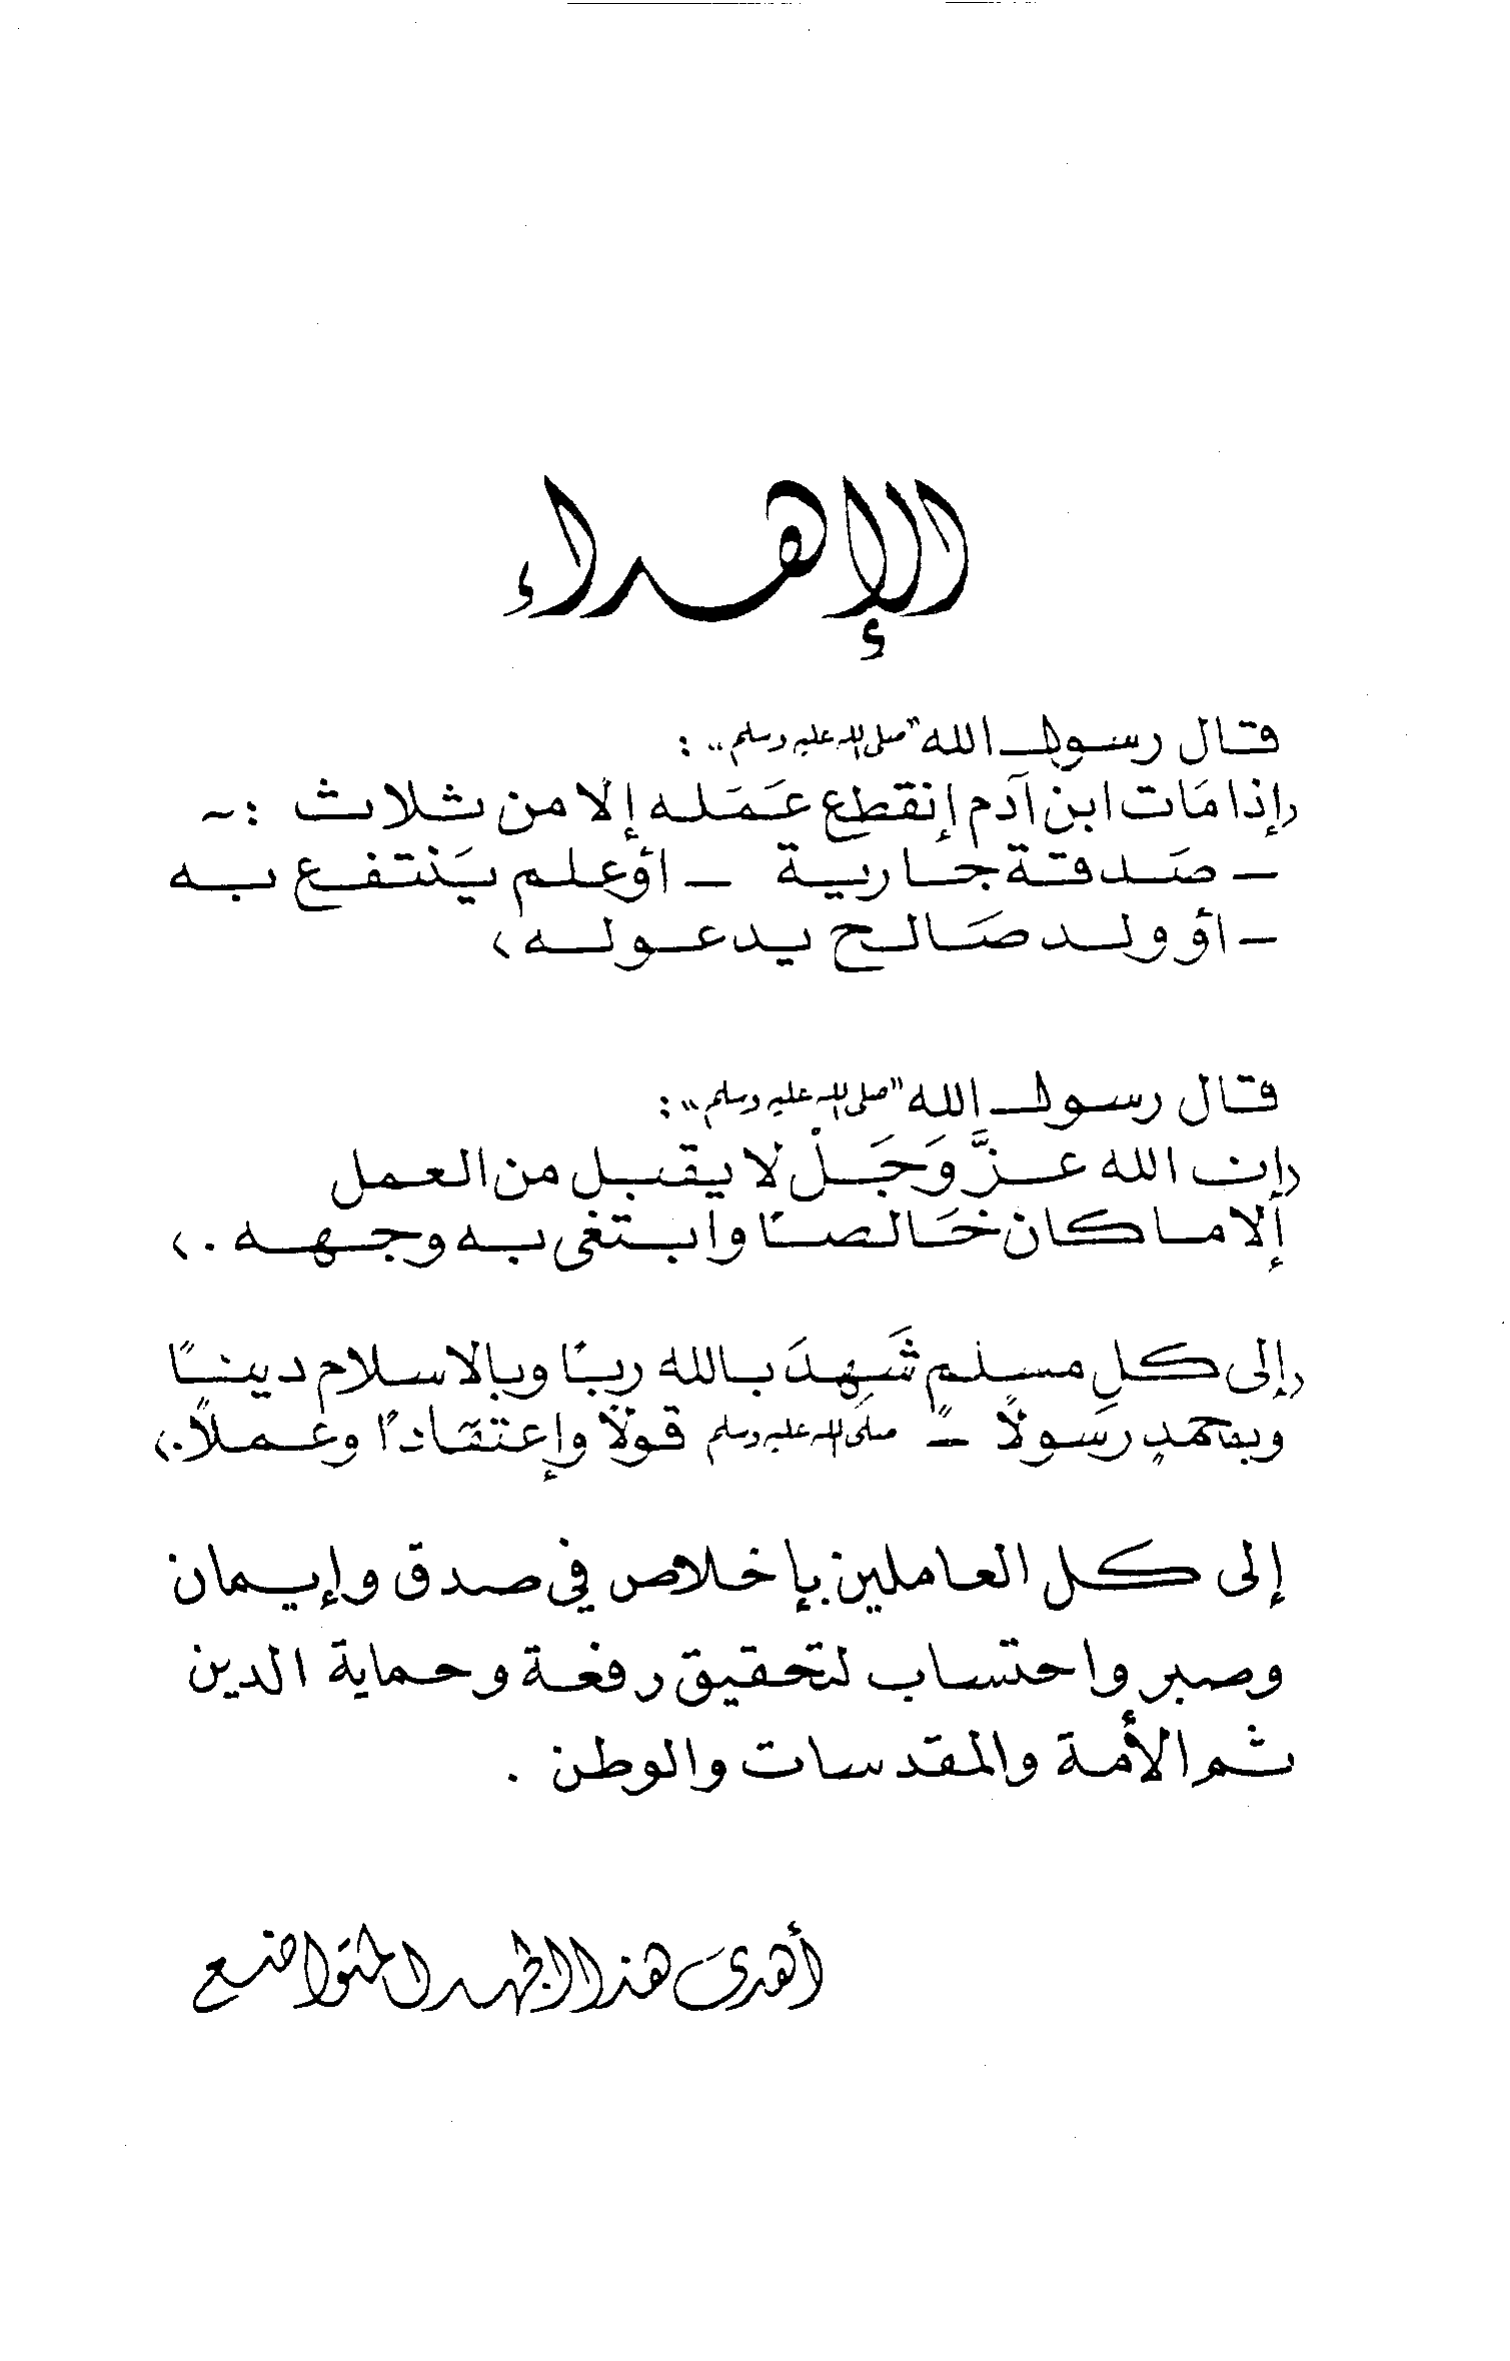 الإهداء
قال رسول الله "صلى الله عليه وسلم" :
(إذا مَات ابن آدم إنقطع عَمَله إلا من ثلاث :~
- صَدقة جارية - أو علم يَنتفع به
- أو ولد صَالح يدعوله)
قال رسول الله "صلى الله عليه وسلم" :
(إن الله عزَّ وَجَلْ لا يقبل من العمل
إلا ما كان خَالصًا وابتغى به وجهه .)
(إلى كلِ مسلم شَهِدَ بالله ربًا وبالاسلام دينًا
وبمحمدٍ رَسولاً - صلى الله عليه وسلم قولاً وإعتقادًا وعملاً.)
إلى كل العاملين بإخلاص في صدق وإيمان
وصبر واحتساب لتحقيق رفعة وحماية الدين
ثم الأمة والمقدسات والوطن .
أهدى هذا الجهد المتواضع